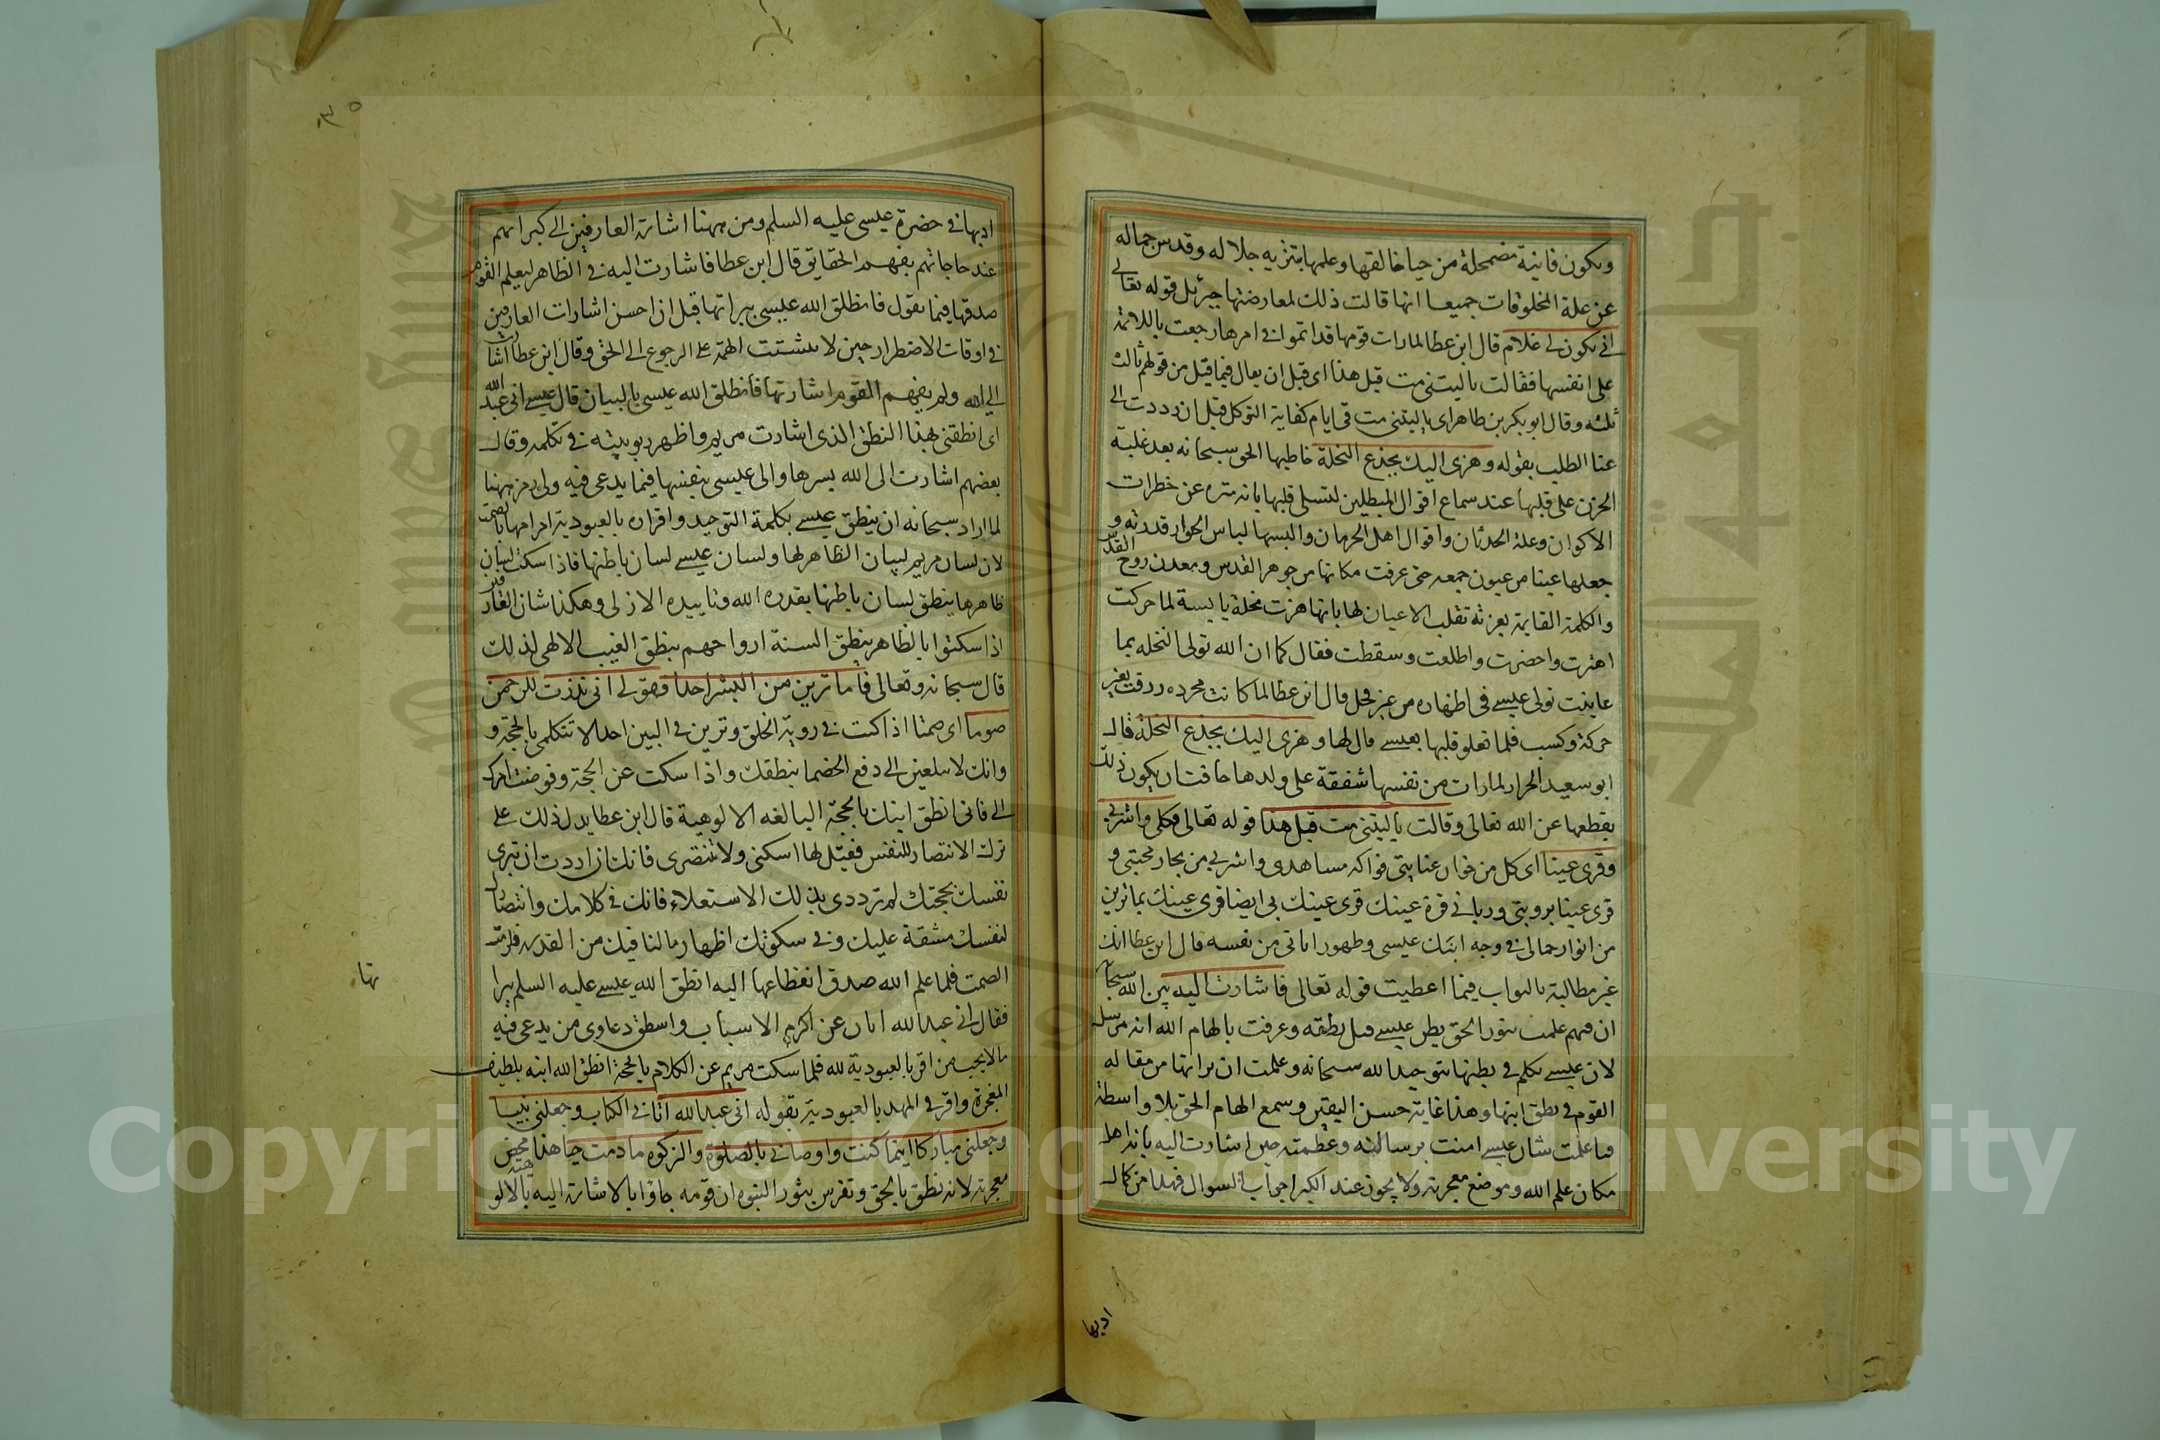 وتكون فانية مضمحلة من حيا خالقها وعلمها بتنزيه جلاله وقدس جماله
عن علة المخلوقات جميعا انها قالت ذلك لمعارضتها جبرئيل قوله تعالى
انى يكون لى غلام قال ابن عطا لما رات قومها قد اتموا فى امرها رجعت باللائمة
على انفسها فقالت ياليتنى مت قبل هذا اى قبل ان يقال فيما قيل من قولهم ثالث
ثلثه وقال ابو بكر بن طاهر اى ياليتنى مت فى ايام كفاية التوكل قبل ان رددت الى
عنا الطلب بقوله وهزى اليك بجذع النخلة خاطبها الحق سبحانه بعد غلبة
الحزن على قلبها عند سماع اقوال المبطلين لتسلى قلبها بانه منزه عن خطرات
الاكوان وعلة الحدثان واقوال اهل الحرمان والبسها لباس انوار قدرته و
جعلها عينا من عيون جمعه حتى عرفت مكانها من جوهر القدس ومعدن روح القدس
والكلمة القايمة بعزته تقلب الاعيان لها بانها هزت نخلة يابسة لما حركت
اهتزت واخضرت واطلعت وسقطت فقال كما ان الله تولى النخله بما
عاينت تولى عيسى فى اظهاره من غير فحل وقال ابن عطا لما كانت مجرده رزقت بغير
حركة وكسب فلما تعلق قلبها بعيسى قال لها وهزى اليك بجذع النخلة قال
ابو سعيد الخراز لما رات من نفسها شفقة على ولدها خافت ان يكون ذلك
يقطعها عن الله تعالى وقالت ياليتنى مت قبل هذا قوله تعالى فكلى واشربى
وقرى عينا اى كل من خوان عنايتى فواكه مشاهدى واشربى من بحار محبتى و
قرى عينا برويتى وربانى قرة عينك قرى عينك بى ايضا قرى عينك بما ترين
من انوار جمالى فى وجه ابنك عيسى وظهور اياتى من نفسه قال ابن عطا انك
غير مطالبة بالثواب فيما اعطيت قوله تعالى فاشارت اليه بين الله سبحا
ان فهم علمت بنور الحق نطق عيسى قبل نطقه وعرفت بالهام الله انه مرسله
لان عيسى تكلم فى بطنها بتوحيد الله سبحانه وعلمت ان براتها من مقاله
القوم فى نطق ابنها وهذا غاية حسن اليقين وسمع الهام الحق بلا واسطة
وما علمت شان عيسى امنت برسالته وعظمته حين اشارت اليه بانه اهل
مكان علم الله وموضع معجزته ولا يجوز عند الكبرا جواب السوال فهذا من كمال
ادبها
ادبها فى حضرة عيسى عليه السلم ومن ههنا اشارة العارفين الى كبرائهم
عند حاجاتهم بفهم الحقايق قال ابن عطا فاشارت اليه فى الظاهر ليعلم القوم
صدقها فيما تقول فانطلق الله عيسى ببراتها قيل ان احسن اشارات العارفين
فى اوقات الاضطرار حين لا يتشتت الهمة على الرجوع الى الحق وقال ابن عطا اشارت
الى الله ولم يفهم القوم اشارتها فانطلق الله عيسى بالبيان قال عيسى انى عبد الله
اى انطقنى بهذا النطق الذى اشارت مريم واظهر ربوبيته فى تكلمه وقال
بعضهم اشارت الى الله بسرها والى عيسى بنفسها فيما يدعى فيه ولى رمز ههنا
لما اراد سبحانه ان ينطق عيسى بكلمة التوحيد واقراره بالعبودية امر امها بالصمت
لان لسان مريم لسان الظاهر لها ولسان عيسى لسان باطنها فاذا سكت لسان
ظاهرها ينطق لسان باطنها بقدرة الله وتاييده الازلى وهكذا شان العارفين
اذا سكتوا بالظاهر ينطق السنة ارواحهم بنطق الغيب الالهى لذلك
قال سبحانه وتعالى فاما ترين من البشر احدا فقولى انى نذرت للرحمن
صوما اى صمتا اذا كنت فى روية الخلق وترين فى البين احدا لا تتكلمى بالحجة و
وانك لا تبلغين الى دفع الخصما بنطقك واذا سكت عن الحجة وفوضت امرك
الى فانى انطق ابنك بالحجة البالغه الالوهية قال ابن عطا يدل ذلك على
ترك الانتصار للنفس فقيل لها اسكتى ولا تنتصرى فانك ان اردت ان تبرى
نفسك بحجتك لم تزددى بذلك الاستعلاء فانك فى كلامك وانتصار
لنفسك مشقة عليك وفى سكوتك اظهار مالنا فيك من القدرة فلزمت
الصمت فلما علم الله صدق انقطاعها اليه انطق الله عيسى عليه السلم ببرا
فقال انى عبد الله ابان عن اكرم الاسباب واسطق دعاوى من يدعى فيه
مالا يجب من اقر بالعبودية لله فلما سكت مريم عن الكلام بالحجة انطق الله ابنه بلطيف
المعجزة واقر فى المهد بالعبودية بقوله انى عبد الله اتانى الكتاب وجعلنى نبيا
وجعلنى مباركا اينما كنت واوصانى بالصلوة والزكوه ما دمت حيا هذا محض
معجزته لانه نطق بالحق وتفرس بنور النبوه ان قومه جاوا بالاشارة اليه بالالوهية
تها
Copyright © King Saud University